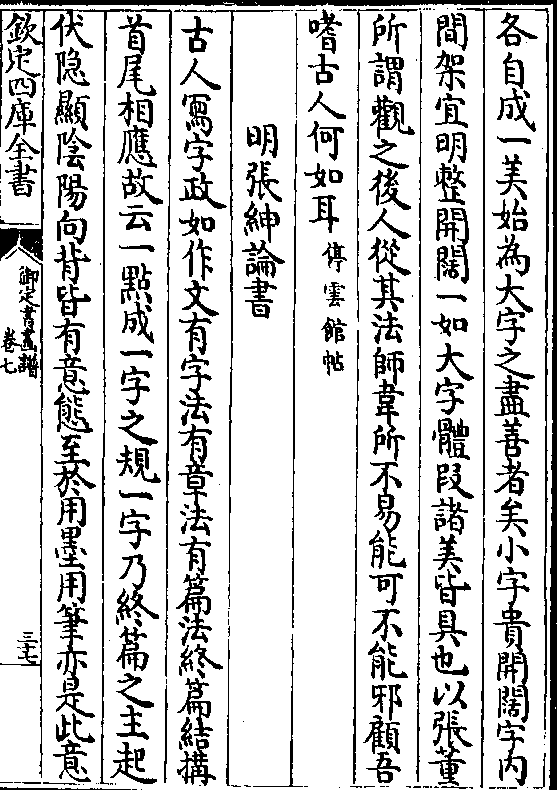 各自成一美始為大字之盡善者矣小字貴開闊字内
間架宜明整開闊一如大字體段諸美皆具也以張董
所謂觀之後人從其法師韋所不易能可不能邪顧吾
嗜古人何如耳停雲館帖
明張紳論書
古人寫字政如作文有字法有章法有篇法終篇結搆
首尾相應故云一點成一字之規一字乃終篇之主起
伏隐顯陰陽向背皆有意態至於用墨用筆亦是此意
欽定四庫全書
御定書畫譜
卷七
三十七